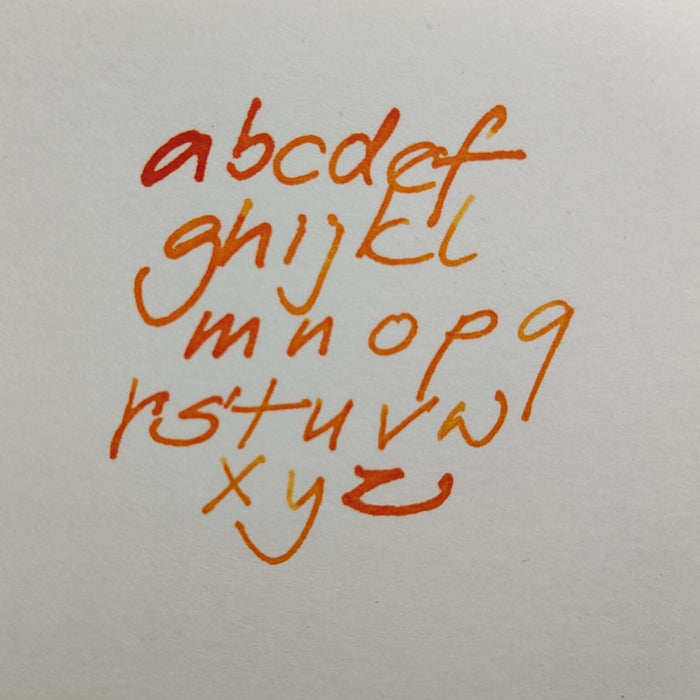 abcdef
ghijkl
mnopq
rstuvw
xyz